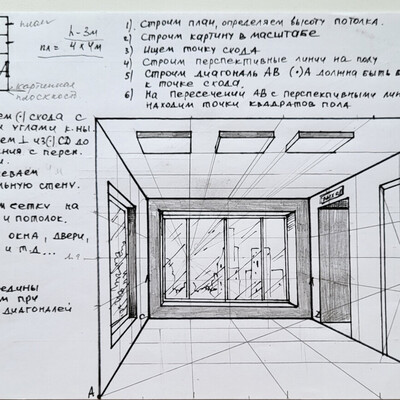 план
h - 3м
пл = 4 х 4м
A
картинная
плоскост
1). Строим план, определяем высоту потолка.
2) Строим картину в масштабе
3) Ищем точку схода
4) Строим перспективные линии на полу
5) Строим диагональ АВ (•)А должна быть в
к точке схода.
6) На пересечении АВ с перспективными лин
находим точки квадратов пола.
ем (•) схода с
и углами к.ны.
ем ⊥ из (•) CD до
ния с персп.
и.
еваем
льную стену.
м сетку на
и потолок.
окна, двери,
и т.д...
едины
м при
диагоналей
C
A